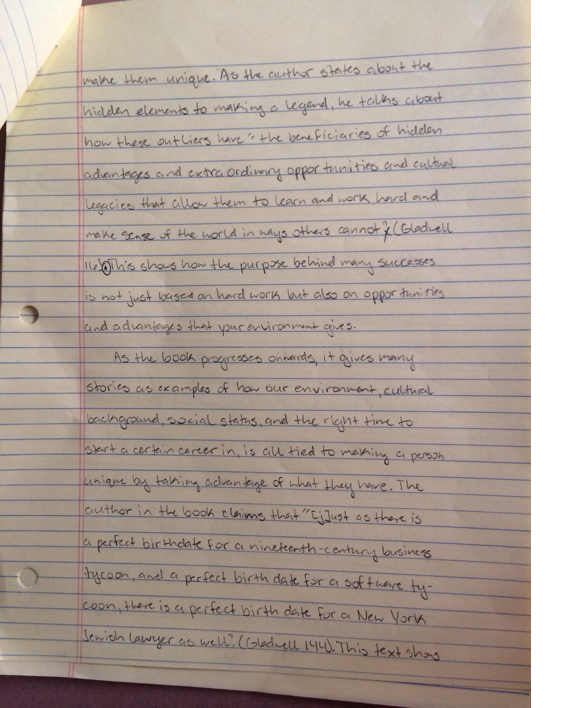 make them unique. As the author states about the
hidden elements to making a legend, he talks about
how these outliers have " the beneficiaries of hidden
advantages and extraordinary opportunities and cultual
legacies that allow them to learn and work hard and
make sense of the world in ways others cannot" (Gladwell
This shows how the purpose behind many successes
is not just based on hard work but also on opportunities
and advantages that your environment gives.
As the book progresses onwards, it gives many
stories as examples of how our environment, cultural
background, social status, and the right time to
start a certain career in, is all tied to making a person
unique by taking advantage of what they have. The
author in the book claims that "[j]ust as there is
a perfect birthdate for a nineteenth-century business
tycoon, and a perfect birth date for a software ty-
coon, there is a perfect birth date for a New York
Jewish lawyer as well". (Gladwell 144). This text shows